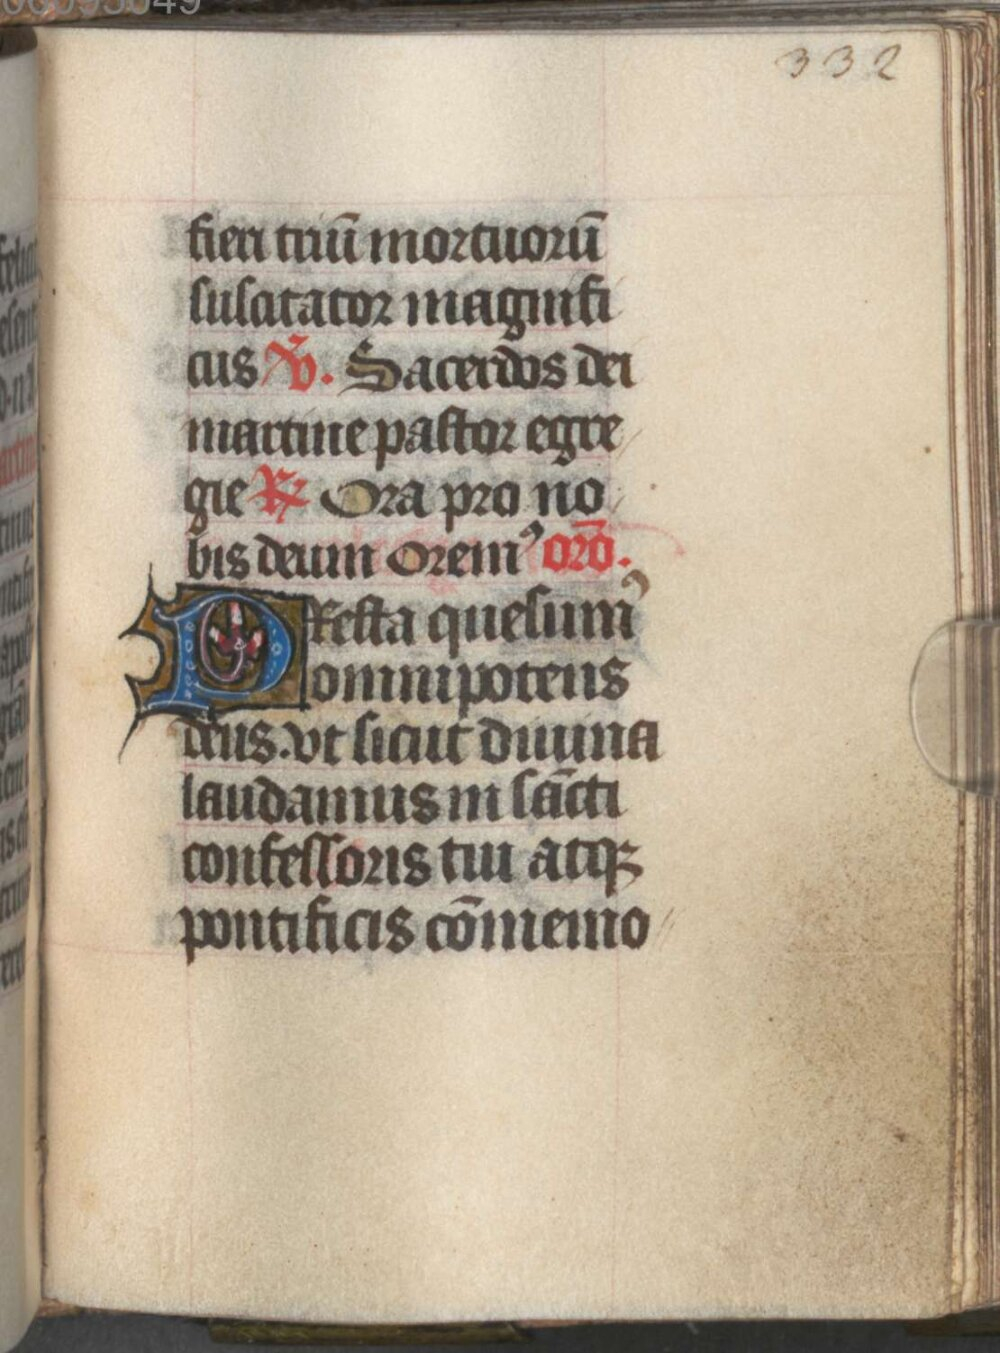 332
fieri triū mortuorū
suscitator magnifi
cus ℣. Sacerdos dei
martine pastor egre
gie ℟ Ora pro no
bis deum Orem⁹ orō.
PResta quesum⁹
omnipotens
deus. vt sicut diuina
laudamus in sācti
confessoris tui atqꝫ
pontificis cōmemo